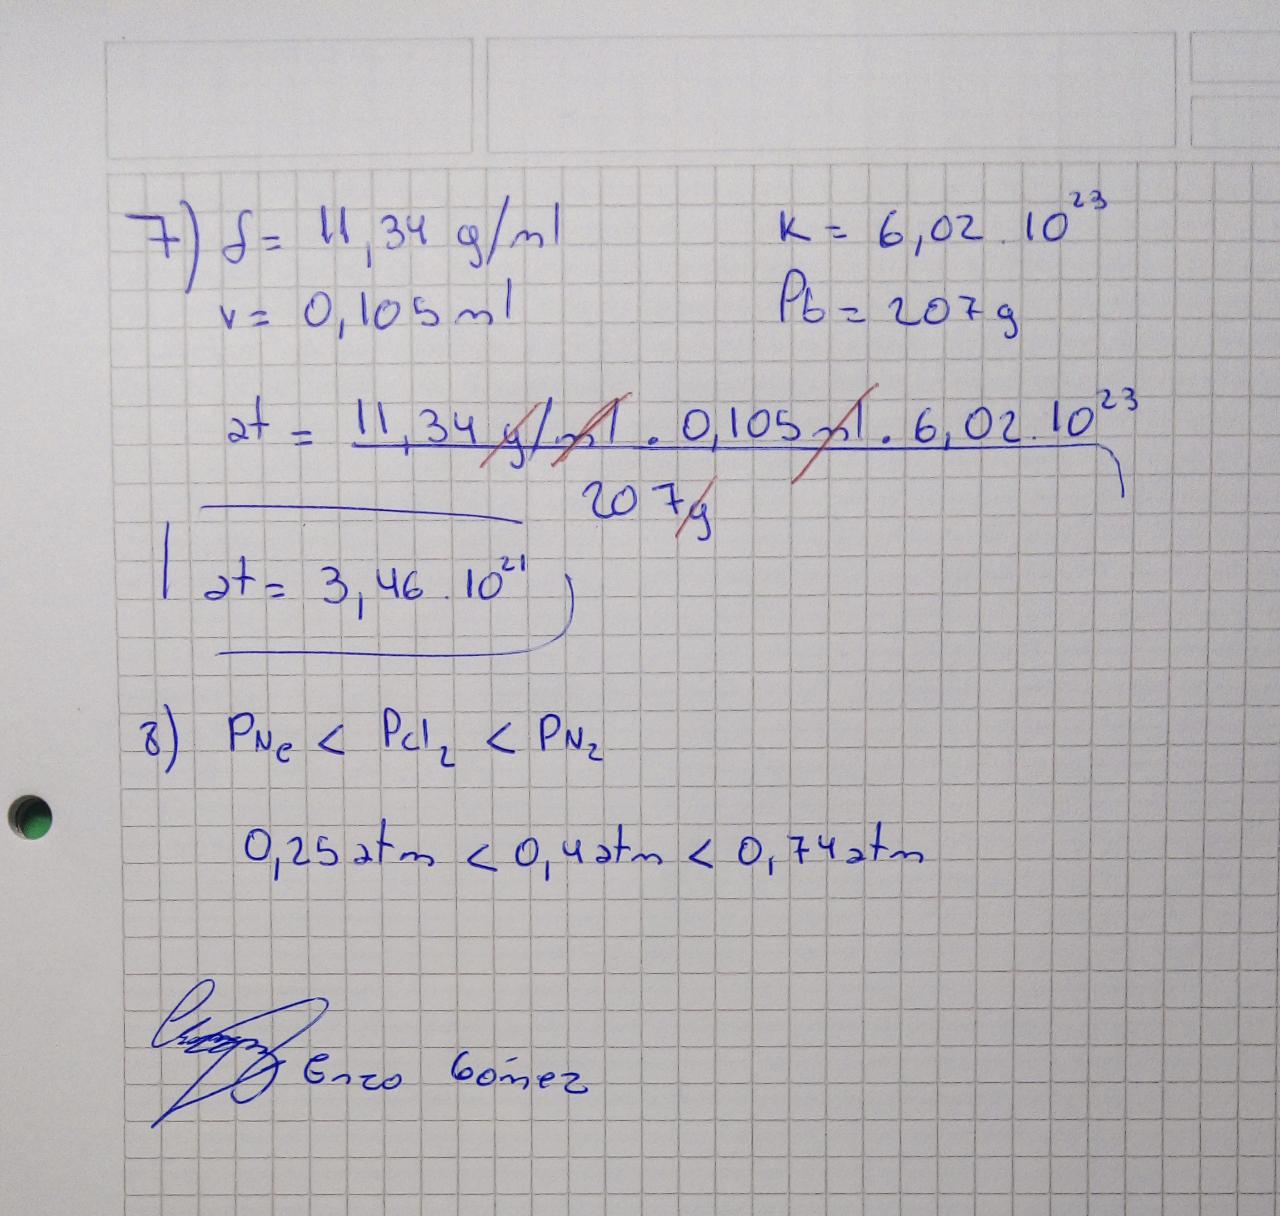 7) δ= 11,34 g/ml K = 6,02.10²³
v= 0,105 ml Pb = 207g
at = 11,34 g/ml . 0,105 ml . 6,02.10²³
207g
at= 3,46.10²¹
8) PNe < PCl₂ < PN₂
0,25 atm < 0,4 atm < 0,74 atm
Enzo Gómez